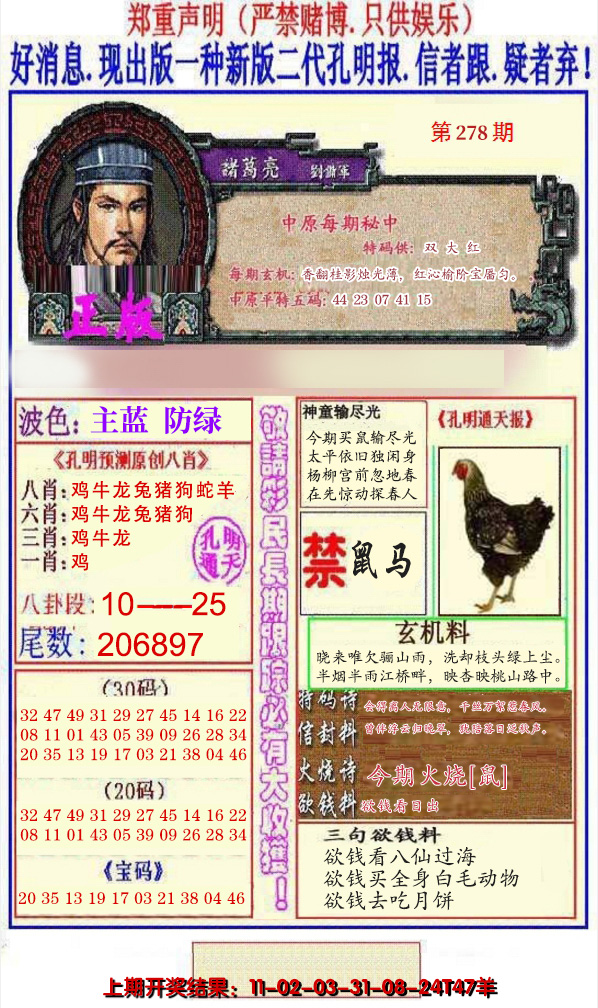 郑重声明（严禁赌博.只供娱乐）
好消息.现出版一种新版二代孔明报.信者跟.疑者弃！
第278期
諸葛亮 劉備軍
中原每期秘中
特码供: 双大红
每期玄机: 香翻桂影烛光薄，红沁榆阶宝靥匀。
中原平特五码: 44 23 07 41 15
正版
波色: 主蓝 防绿
《孔明预测原创八肖》
八肖: 鸡牛龙兔猪狗蛇羊
六肖: 鸡牛龙兔猪狗
三肖: 鸡牛龙
一肖: 鸡
孔明
通天
八卦段: 10——25
尾数: 206897
(30码)
32 47 49 31 29 27 45 14 16 22
08 11 01 43 05 39 09 26 28 34
20 35 13 19 17 03 21 38 04 46
(20码)
32 47 49 31 29 27 45 14 16 22
08 11 01 43 05 39 09 26 28 34
《宝码》
20 35 13 19 17 03 21 38 04 46
敬請彩民長期跟踪必有大收獲！
神童输尽光
今期买鼠输尽光
太平依旧独闲身
杨柳宫前忽地春
在先惊动探春人
《孔明通天报》
禁 鼠马
玄机料
晓来唯欠骊山雨，洗却枝头绿上尘。
半烟半雨江桥畔，映杏映桃山路中。
特码诗 会得离人无限意，千丝万絮惹春风。
信封料 曾伴浮云归晚翠，犹陪落日泛秋声。
火烧诗 今期火烧[鼠]
欲钱料 欲钱看日出
三句欲钱料
欲钱看八仙过海
欲钱买全身白毛动物
欲钱去吃月饼
上期开奖结果：11-02-03-31-08-24T47羊